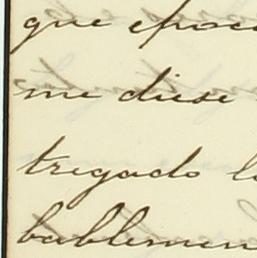 que epoc
me diese
tregado l
bablemen